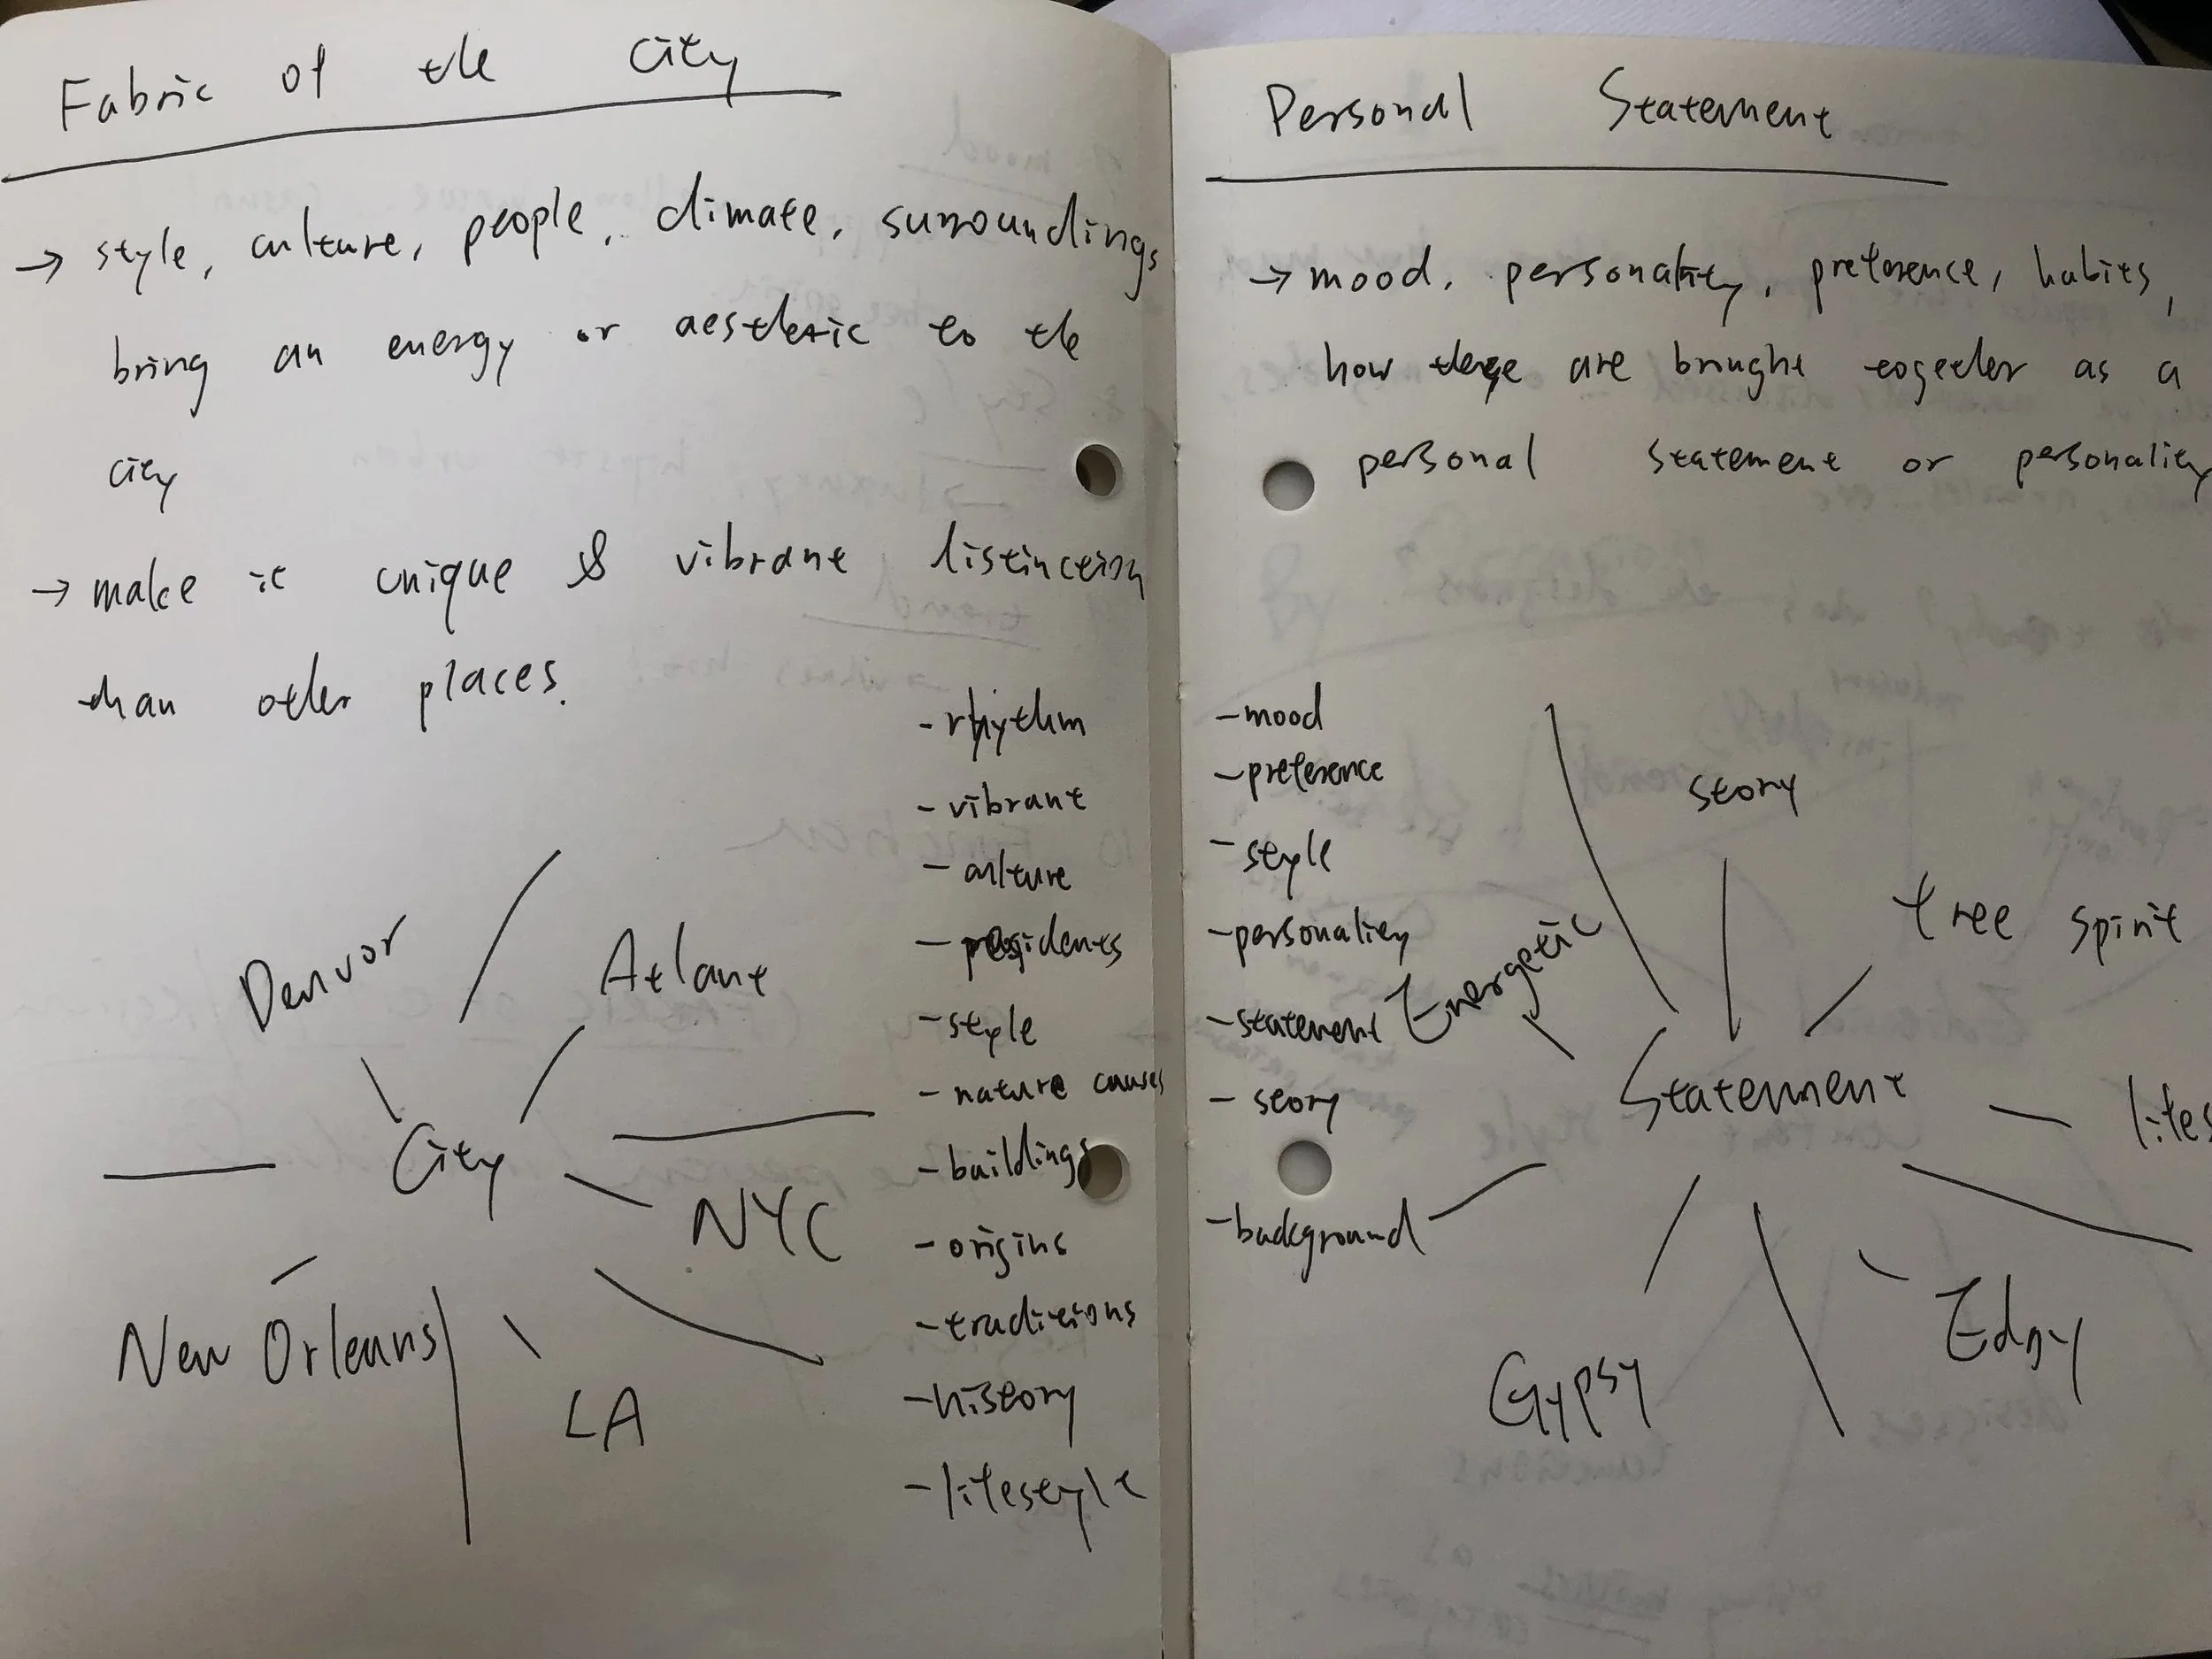 Fabric of the City
→ style, culture, people, climate, surroundings
bring an energy or aesthetic to the
city
→ make it unique & vibrant distinction
than other places.
- rhythm
- vibrant
- culture
- residents
- style
- nature causes
- buildings
- origins
- traditions
- history
- lifestyle
Denvor
Atlant
City
NYC
New Orleans
LA
Personal Statement
→ mood, personality, preference, habits,
how these are brought together as a
personal statement or personality
- mood
- preference
- style
- personality
- statement
- story
- background
story
free spirit
Energetic
Statement
Gypsy